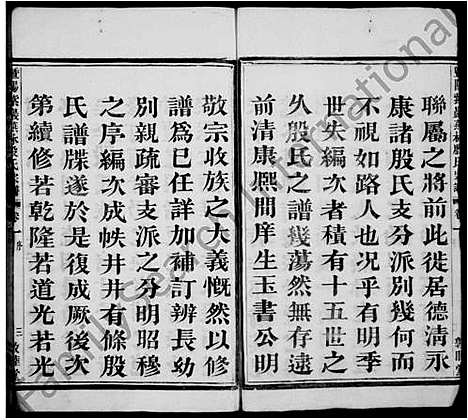 聯屬之將前此徙居德清永
康諸殷氏支分派別幾何而
不視如路人也況乎有明季
世失編次者積有十五世之
久殷氏之譜幾蕩然無存逮
前清康熙間庠生玉書公明
敬宗收族之大義慨然以修
譜為已任詳加補訂辨長幼
別親疏審支派之分明昭穆
之序編次成帙井井有條殷
氏譜牒遂於是復成厥後次
第續修若乾隆若道光若光
卷一 序
三
FamilySearch International